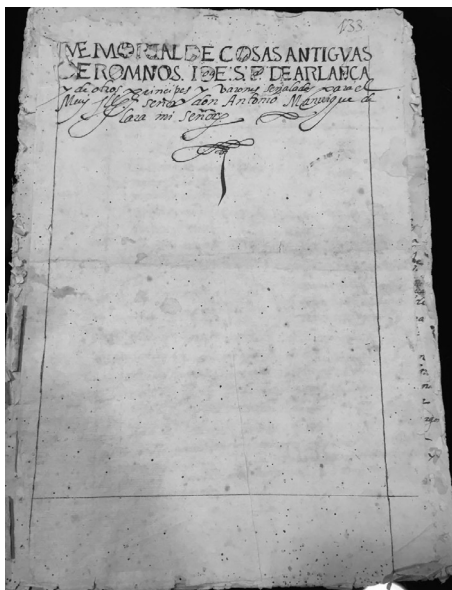 133
MEMORIAL DE COSAS ANTIGVAS
DE ROMNOS. I DE. S. P. DE ARLANCA
y de otros principes y varones señalados para el
Muy Ille señor don Antonio Manrrique de
lara mi señor